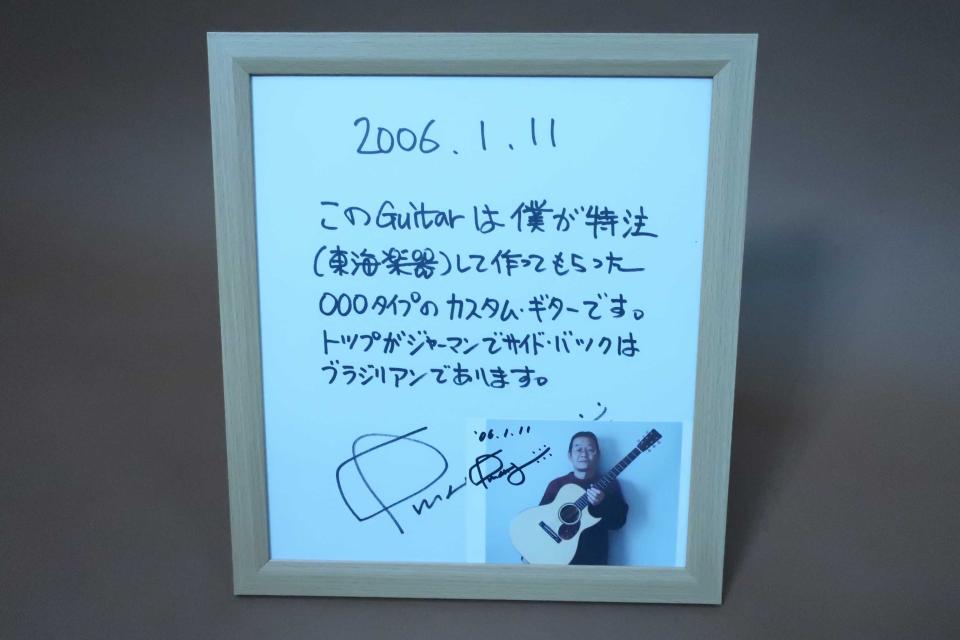 2006.1.11
このGuitarは僕が特注
(東海楽器)して作ってもらった
000タイプのカスタム・ギターです。
トップがジャーマンでサイド・バックは
ブラジリアンであります。
'06.1.11